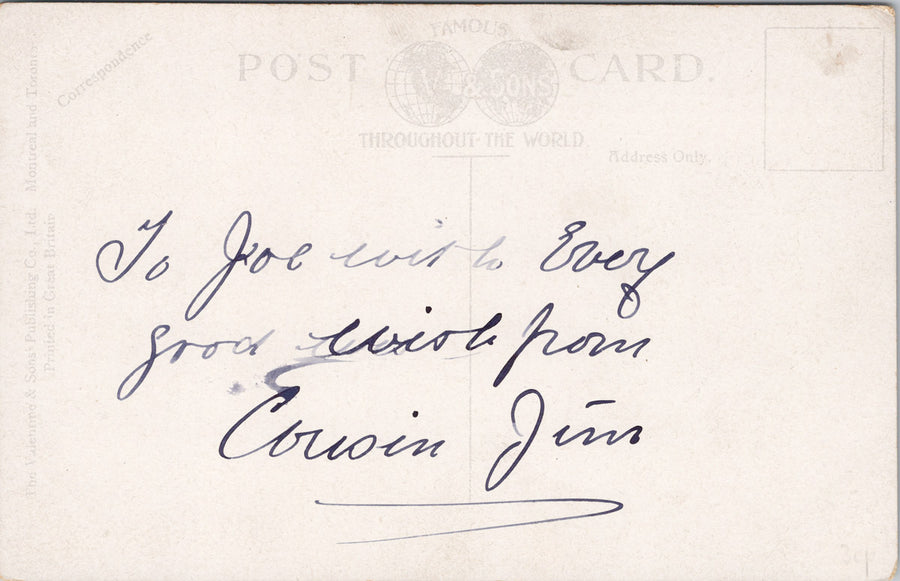 FAMOUS
POST CARD.
V. & SONS
THROUGHOUT THE WORLD
Correspondence
Address Only.
The Valentine & Sons' Publishing Co., Ltd. Montreal and Toronto
Printed in Great Britain
To Joe with Every
good wish from
Cousin Jim